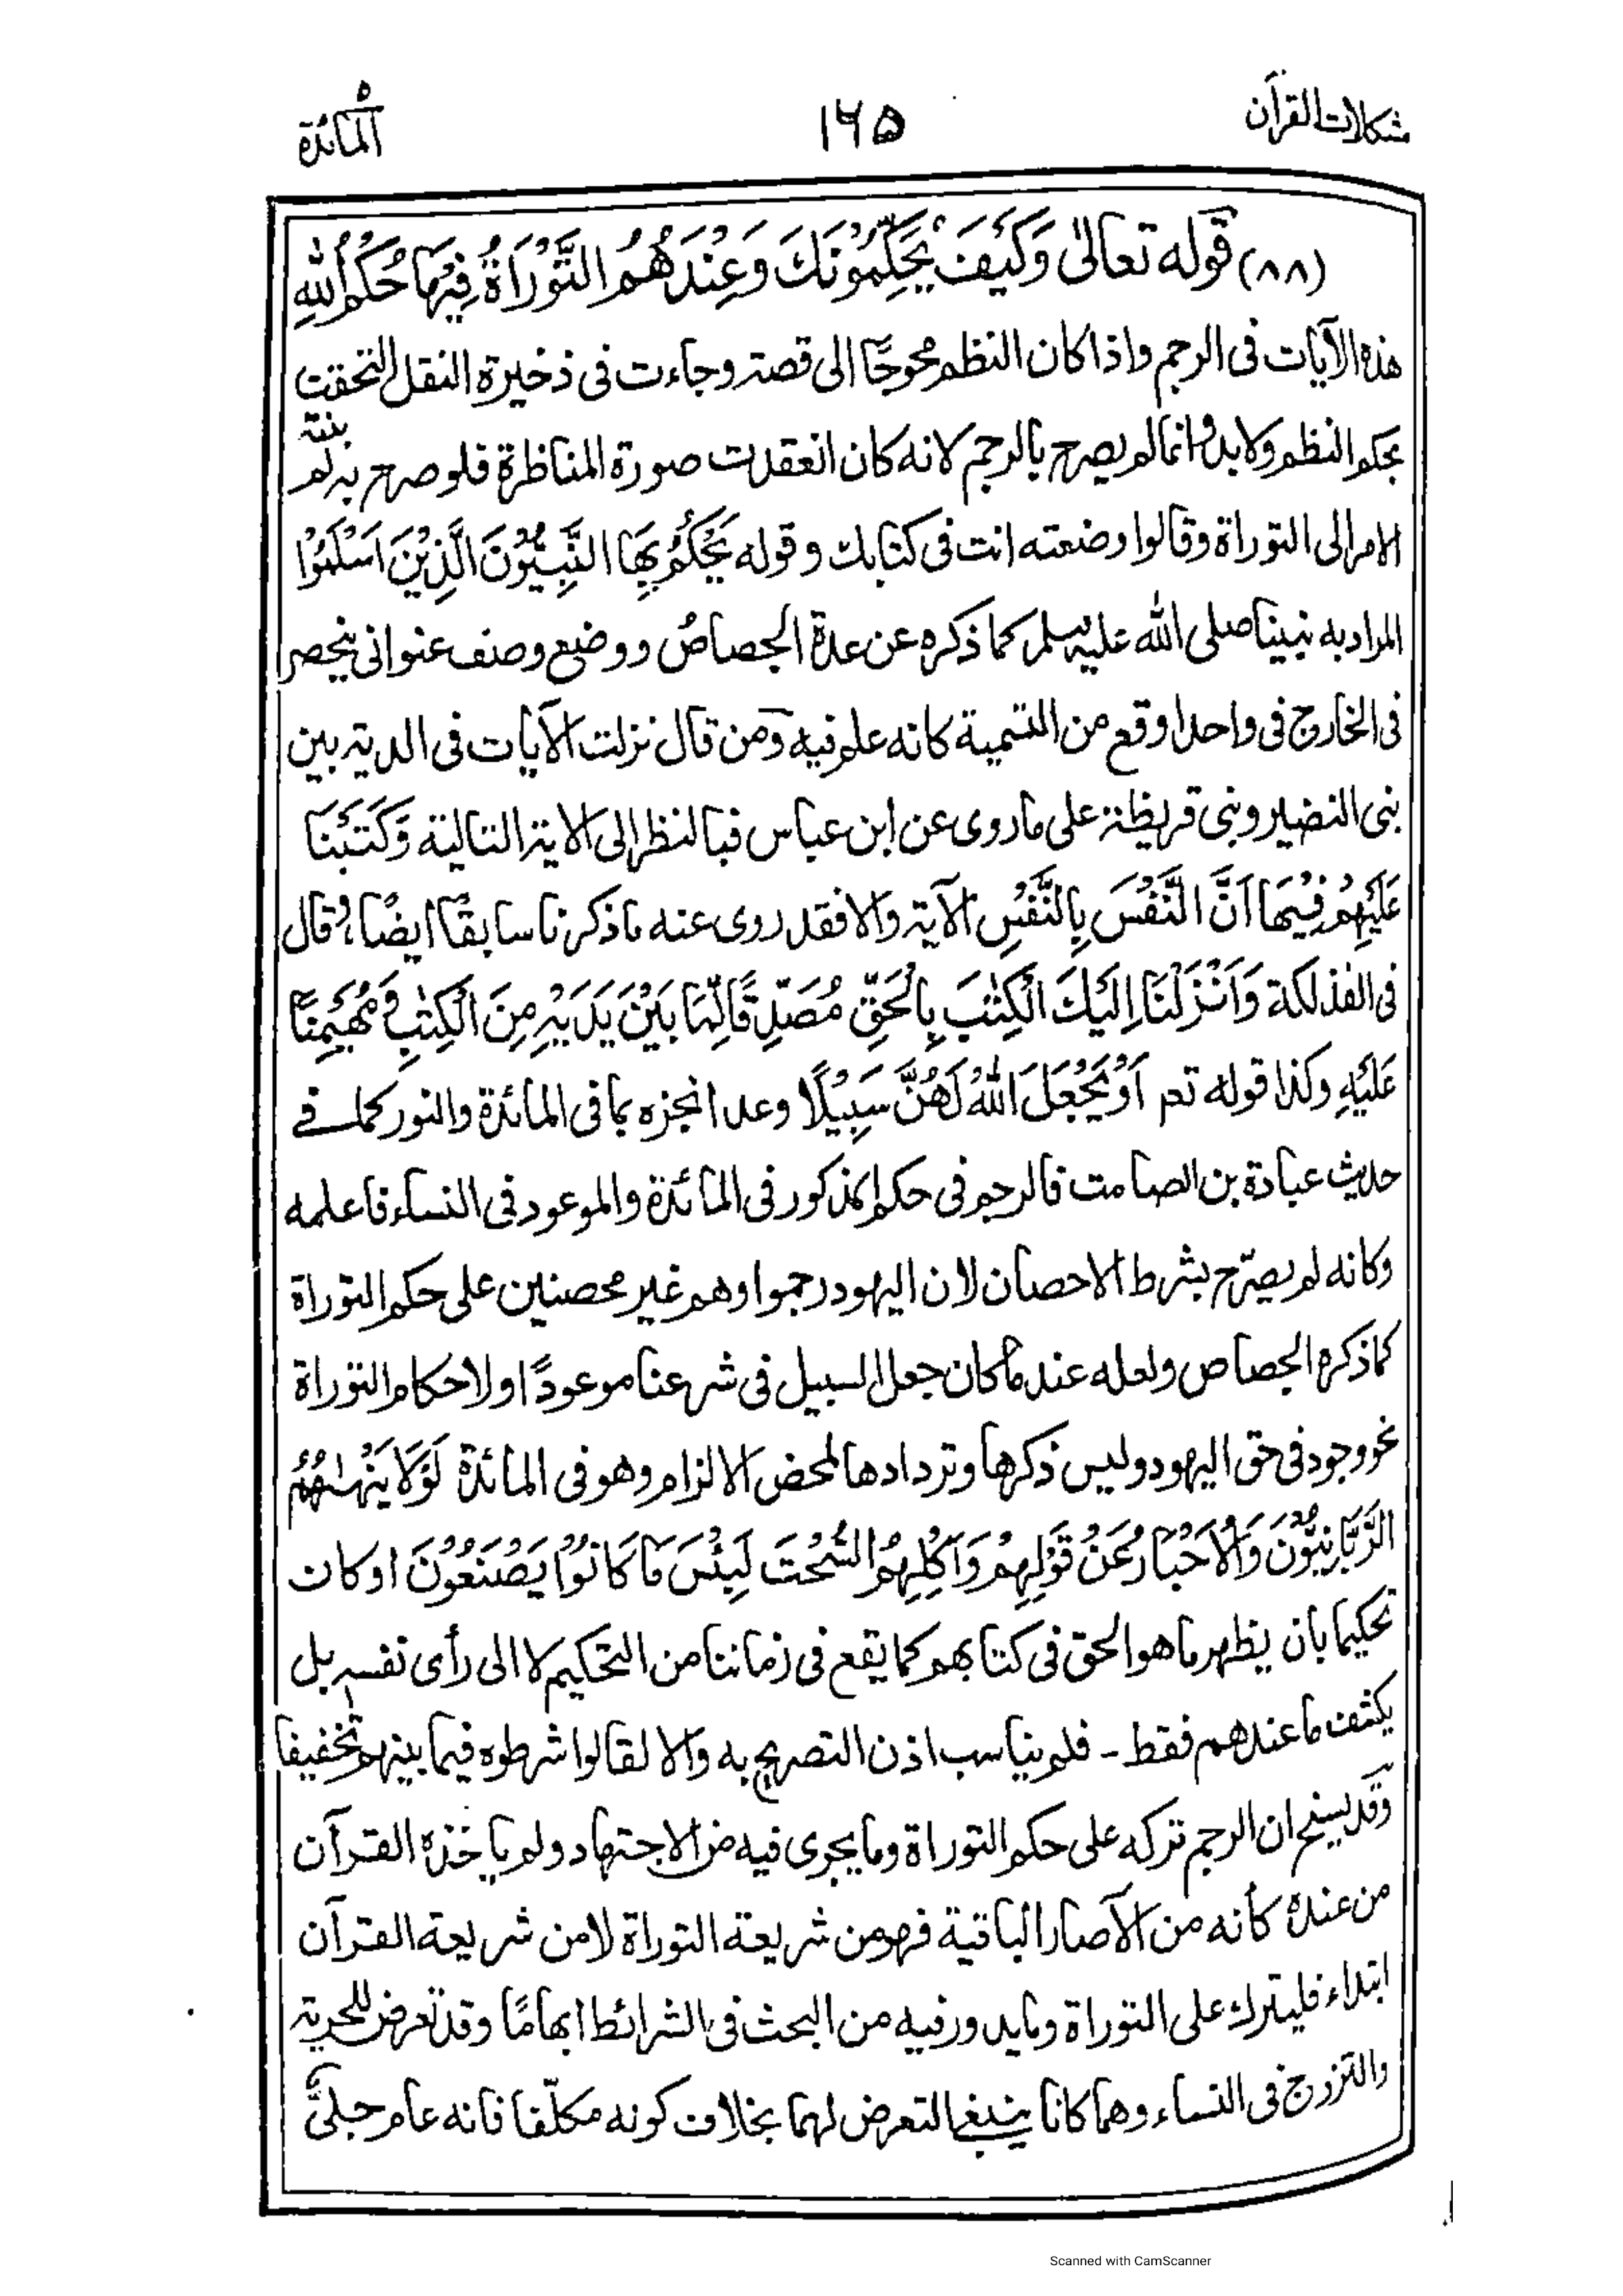 مشكلات القرآن
١٦٥
المائدة ٥
(٨٨) قوله تعالىٰ وَكَيْفَ يُحَكِّمُوْنَكَ وَعِنْدَهُمُ التَّوْرَاةُ فِيْهَا حُكْمُ اللّٰهِ
هذه الآيات فى الرجم واذا كان النظم محوجًا الى قصة وجاءت فى ذخيرة النقل التحقت
بحكم النظم ولا بد وانما لم يصرح بالرجم لانه كان انعقدت صورة المناظرة فلو صرح به لم ينته
الامر الى التوراة وقالوا وضعته انت فى كتابك و قوله يَحْكُمُ بِهَا النَّبِيُّوْنَ الَّذِيْنَ اَسْلَمُوْا
المراد به نبينا صلى الله عليه وسلم كما ذكره عن عدة الجصاصُ ووضع وصف عنوانى ينحصر
فى الخارج فى واحد اوقع من التسمية كانه علم فيه ومن قال نزلت الآيات فى الدية بين
بنى النضير وبنى قريظة على ما روى عن ابن عباس فبالنظر الى الاية التالية وَكَتَبْنَا
عَلَيْهِمْ فِيْهَا اَنَّ النَّفْسَ بِالنَّفْسِ الآية والا فقد روى عنه ما ذكرنا سابقًا ايضًا، وقال
فى الفذلكة وَاَنْزَلْنَا اِلَيْكَ الْكِتٰبَ بِالْحَقِّ مُصَدِّقًا لِّمَا بَيْنَ يَدَيْهِ مِنَ الْكِتٰبِ وَمُهَيْمِنًا
عَلَيْهِ وكذا قوله تعم اَوْ يَجْعَلَ اللّٰهُ لَهُنَّ سَبِيْلًا وعد انجزه بما فى المائدة والنور كما فے
حديث عبادة بن الصامت فالرجم فى حكم المذكور فى المائدة والموعود فى النساء فاعلمه
وكانه لم يصرّح بشرط الاحصان لان اليهود رجموا وهم غير محصنين على حكم التوراة
كما ذكره الجصاص ولعله عند ما كان جعل السبيل فى شرعنا موعودًا اولا حكام التوراة
نحو وجود فى حق اليهود وليس ذكرها وتردادها لمحض الالزام وهو فى المائدة لَوْلَا يَنْهٰىهُمُ
الرَّبَّانِيُّوْنَ وَالْاَحْبَارُ عَنْ قَوْلِهِمْ وَاَكْلِهِمُ السُّحْتَ لَبِئْسَ مَا كَانُوْا يَصْنَعُوْنَ او كان
تحكيما بأن يظهر ما هو الحق فى كتابهم كما يقع فى زماننا من التحكيم لا الى رأى نفسه بل
يكشف ما عندهم فقط - فلم يناسب اذن التصريح به والا لقالوا شرطوه فيما بينهم تخفيفا
وقد يسنح ان الرجم تركه على حكم التوراة وما يجرى فيه من الاجتهاد ولم يأخذه القرآن
من عنده كأنه من الآصار الباقية فهو من شريعة التوراة لا من شريعة القرآن
ابتداء فليترك على التوراة وما يدور فيه من البحث فى الشرائط ابهامًا وقد تعرض للحرية
والتزوج فى النساء وهما كانا ينبغى التعرض لهما بخلاف كونه مكلّفا فانه عام جلىّ
Scanned with CamScanner